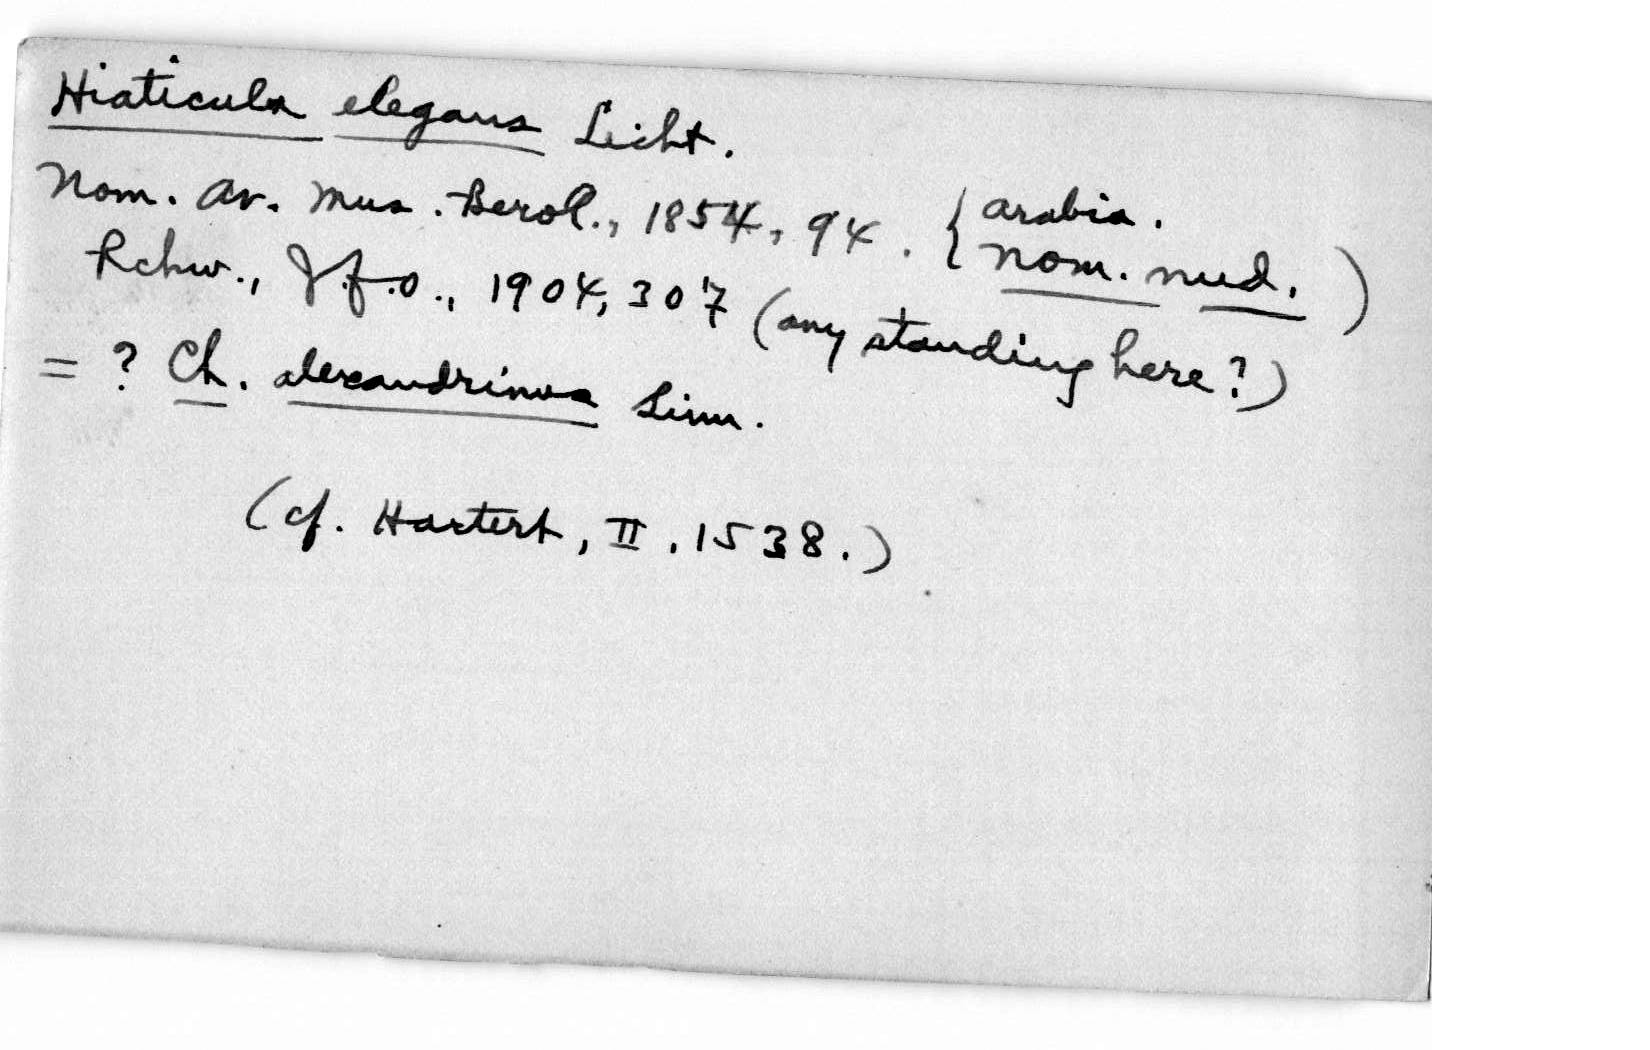 Hiaticula elegans Licht.
Nom. Av. Mus. Berol., 1854, 94. { Arabia.
Nom. nud. )
Rchw., J.f.O., 1904, 307 (any standing here?)
= ? Ch. alexandrinus Linn.
(cf. Hartert, II, 1538.)